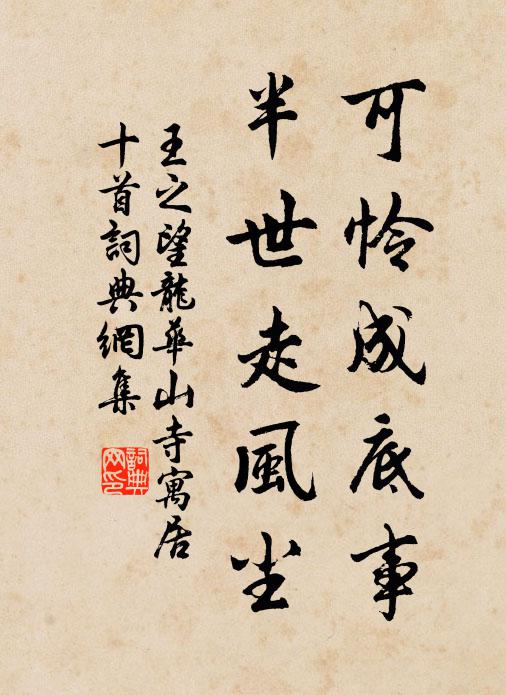 可怜成底事
半世走風尘
王之望龍華山寺寓居
十首詞典網集
詞典网印